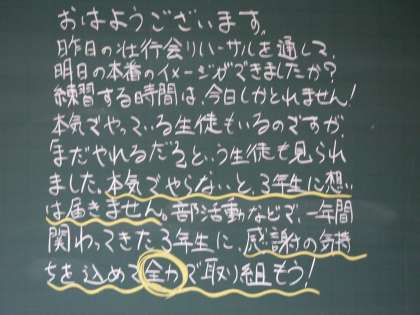 おはようございます。
昨日の壮行会リハーサルを通して、
明日の本番のイメージができましたか？
練習する時間は、今日しかとれません！
本気でやっている生徒もいるのですが、
まだやれるだろという生徒も見られ
ました。本気でやらないと、3年生に想い
は届きません。部活動などで、一年間
関わってきた3年生に、感謝の気持
ちを込めて全力で取り組もう！